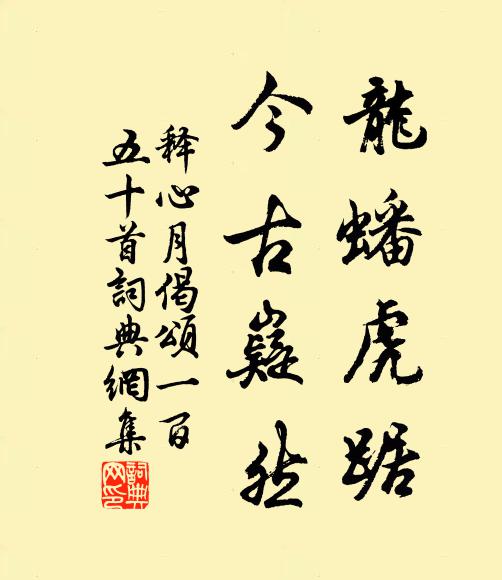 龍蟠虎踞
今古嶷然
释心月偈頌一百
五十首詞典網集
詞典网印